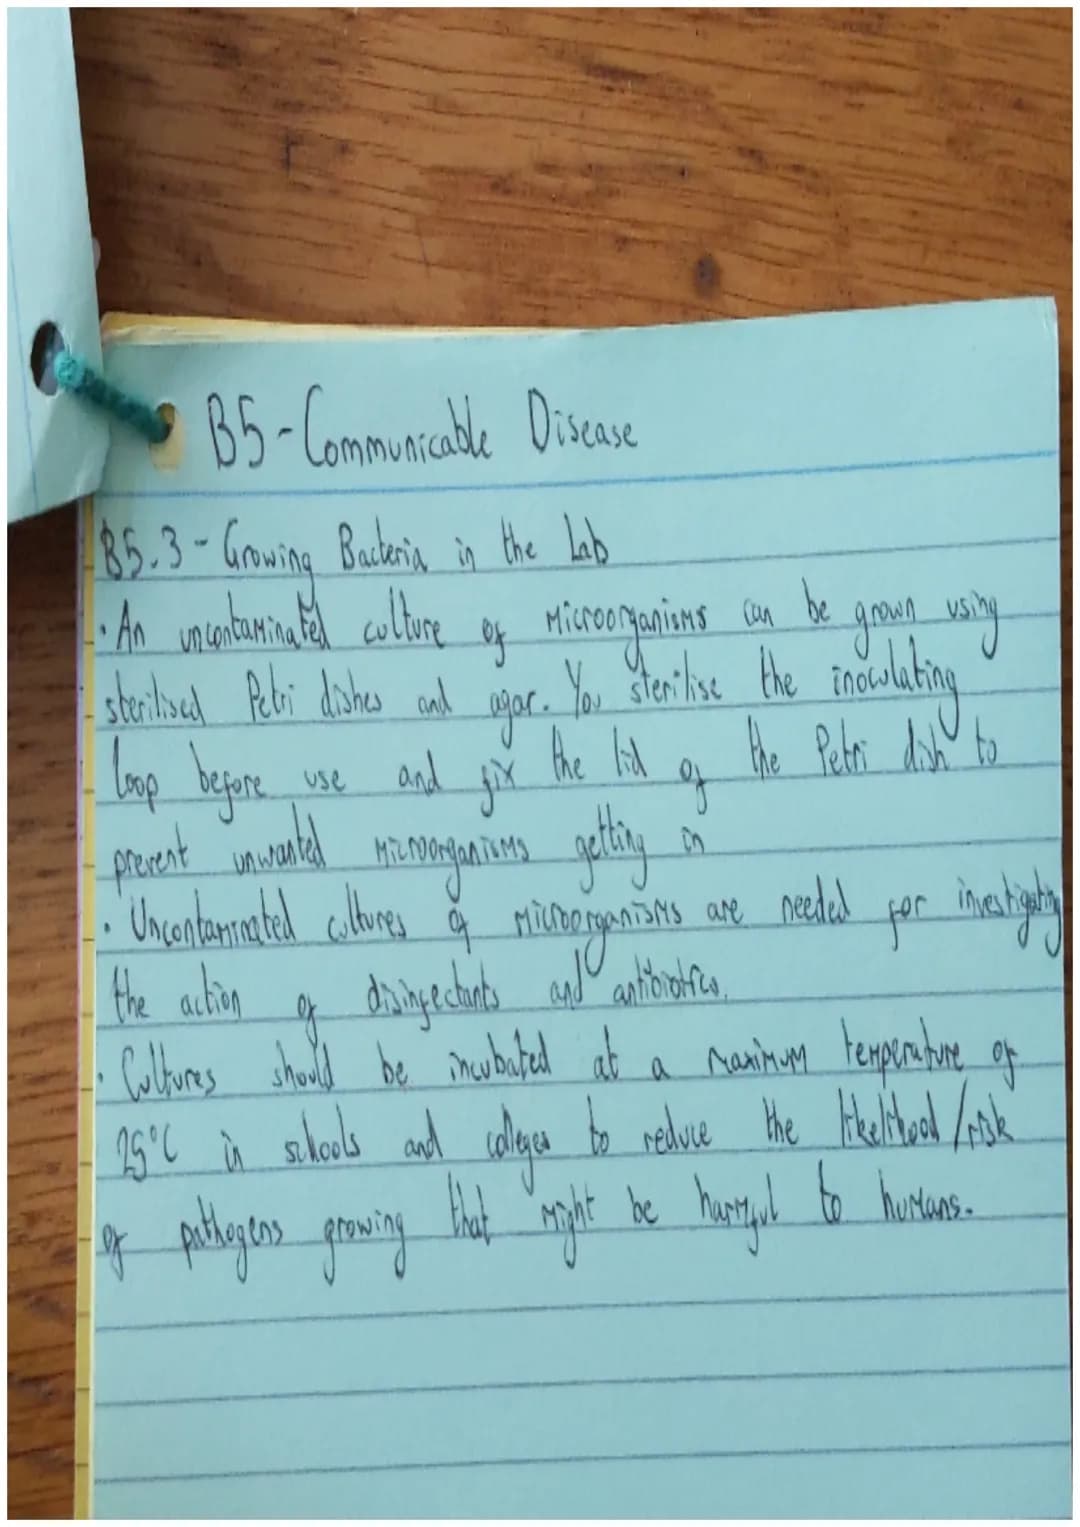 B5-Communicable Disease
B5.3 - Growing Bacteria in the Lab
• An uncontaminated culture of microorganisms can be grown using
sterilised Petri dishes and agar. You sterilise the inoculating
loop before use and fix the lid of the Petri dish to
prevent unwanted microorganisms getting in
• Uncontaminated cultures of microorganisms are needed for investigating
the action of disinfectants and antibiotics.
• Cultures should be incubated at a maximum temperature of
25°C in schools and colleges to reduce the likelihood/risk
of pathogens growing that might be harmful to humans.